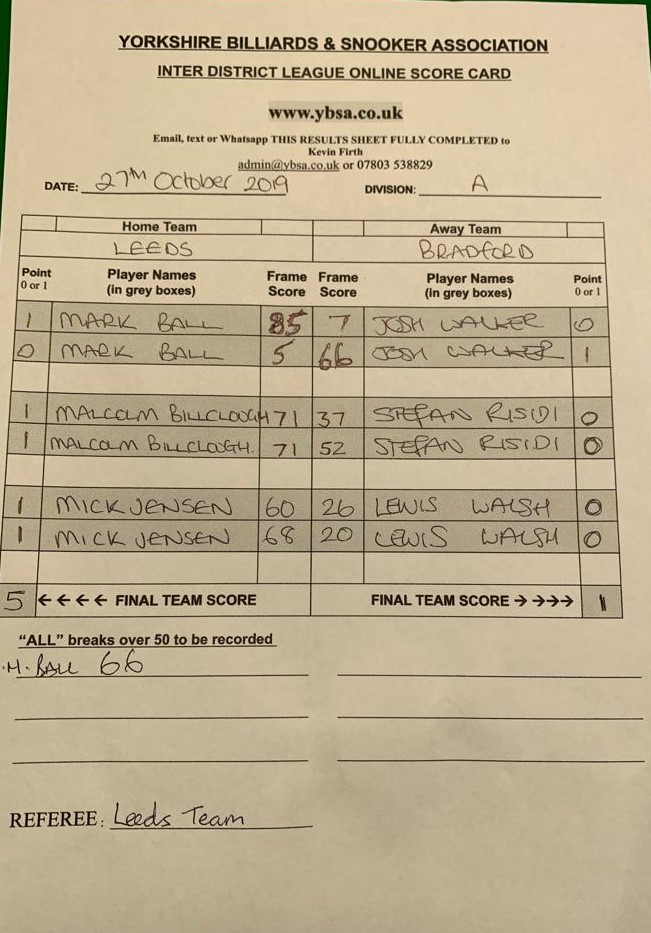 YORKSHIRE BILLIARDS & SNOOKER ASSOCIATION
INTER DISTRICT LEAGUE ONLINE SCORE CARD
www.ybsa.co.uk
Email, text or Whatsapp THIS RESULTS SHEET FULLY COMPLETED to
Kevin Firth
admin@ybsa.co.uk or 07803 538829
DATE: 27TH October 2019 DIVISION: A
Home Team Away Team
LEEDS BRADFORD
Point Player Names Frame Frame Player Names Point
0 or 1 (in grey boxes) Score Score (in grey boxes) 0 or 1
1 MARK BALL 85 7 JOSH WALKER 0
0 MARK BALL 5 66 JOSH WALKER 1
1 MALCOLM BILLCLOUGH 71 37 STEFAN RISIDI 0
1 MALCOLM BILLCLOUGH. 71 52 STEFAN RISIDI 0
1 MICK JENSEN 60 26 LEWIS WALSH 0
1 MICK JENSEN 68 20 LEWIS WALSH 0
5 ←←←← FINAL TEAM SCORE FINAL TEAM SCORE →→→→ 1
"ALL" breaks over 50 to be recorded
M. BALL 66
REFEREE: Leeds Team